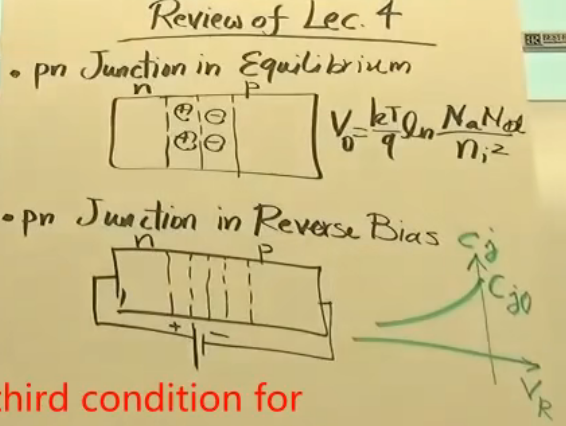 Review of Lec. 4
• pn Junction in Equilibrium
n p
⊕ ⊖
⊕ ⊖
V₀ = kT/q ln NaNd/nᵢ²
• pn Junction in Reverse Bias
n p
+ −
Cj
Cj0
VR
third condition for